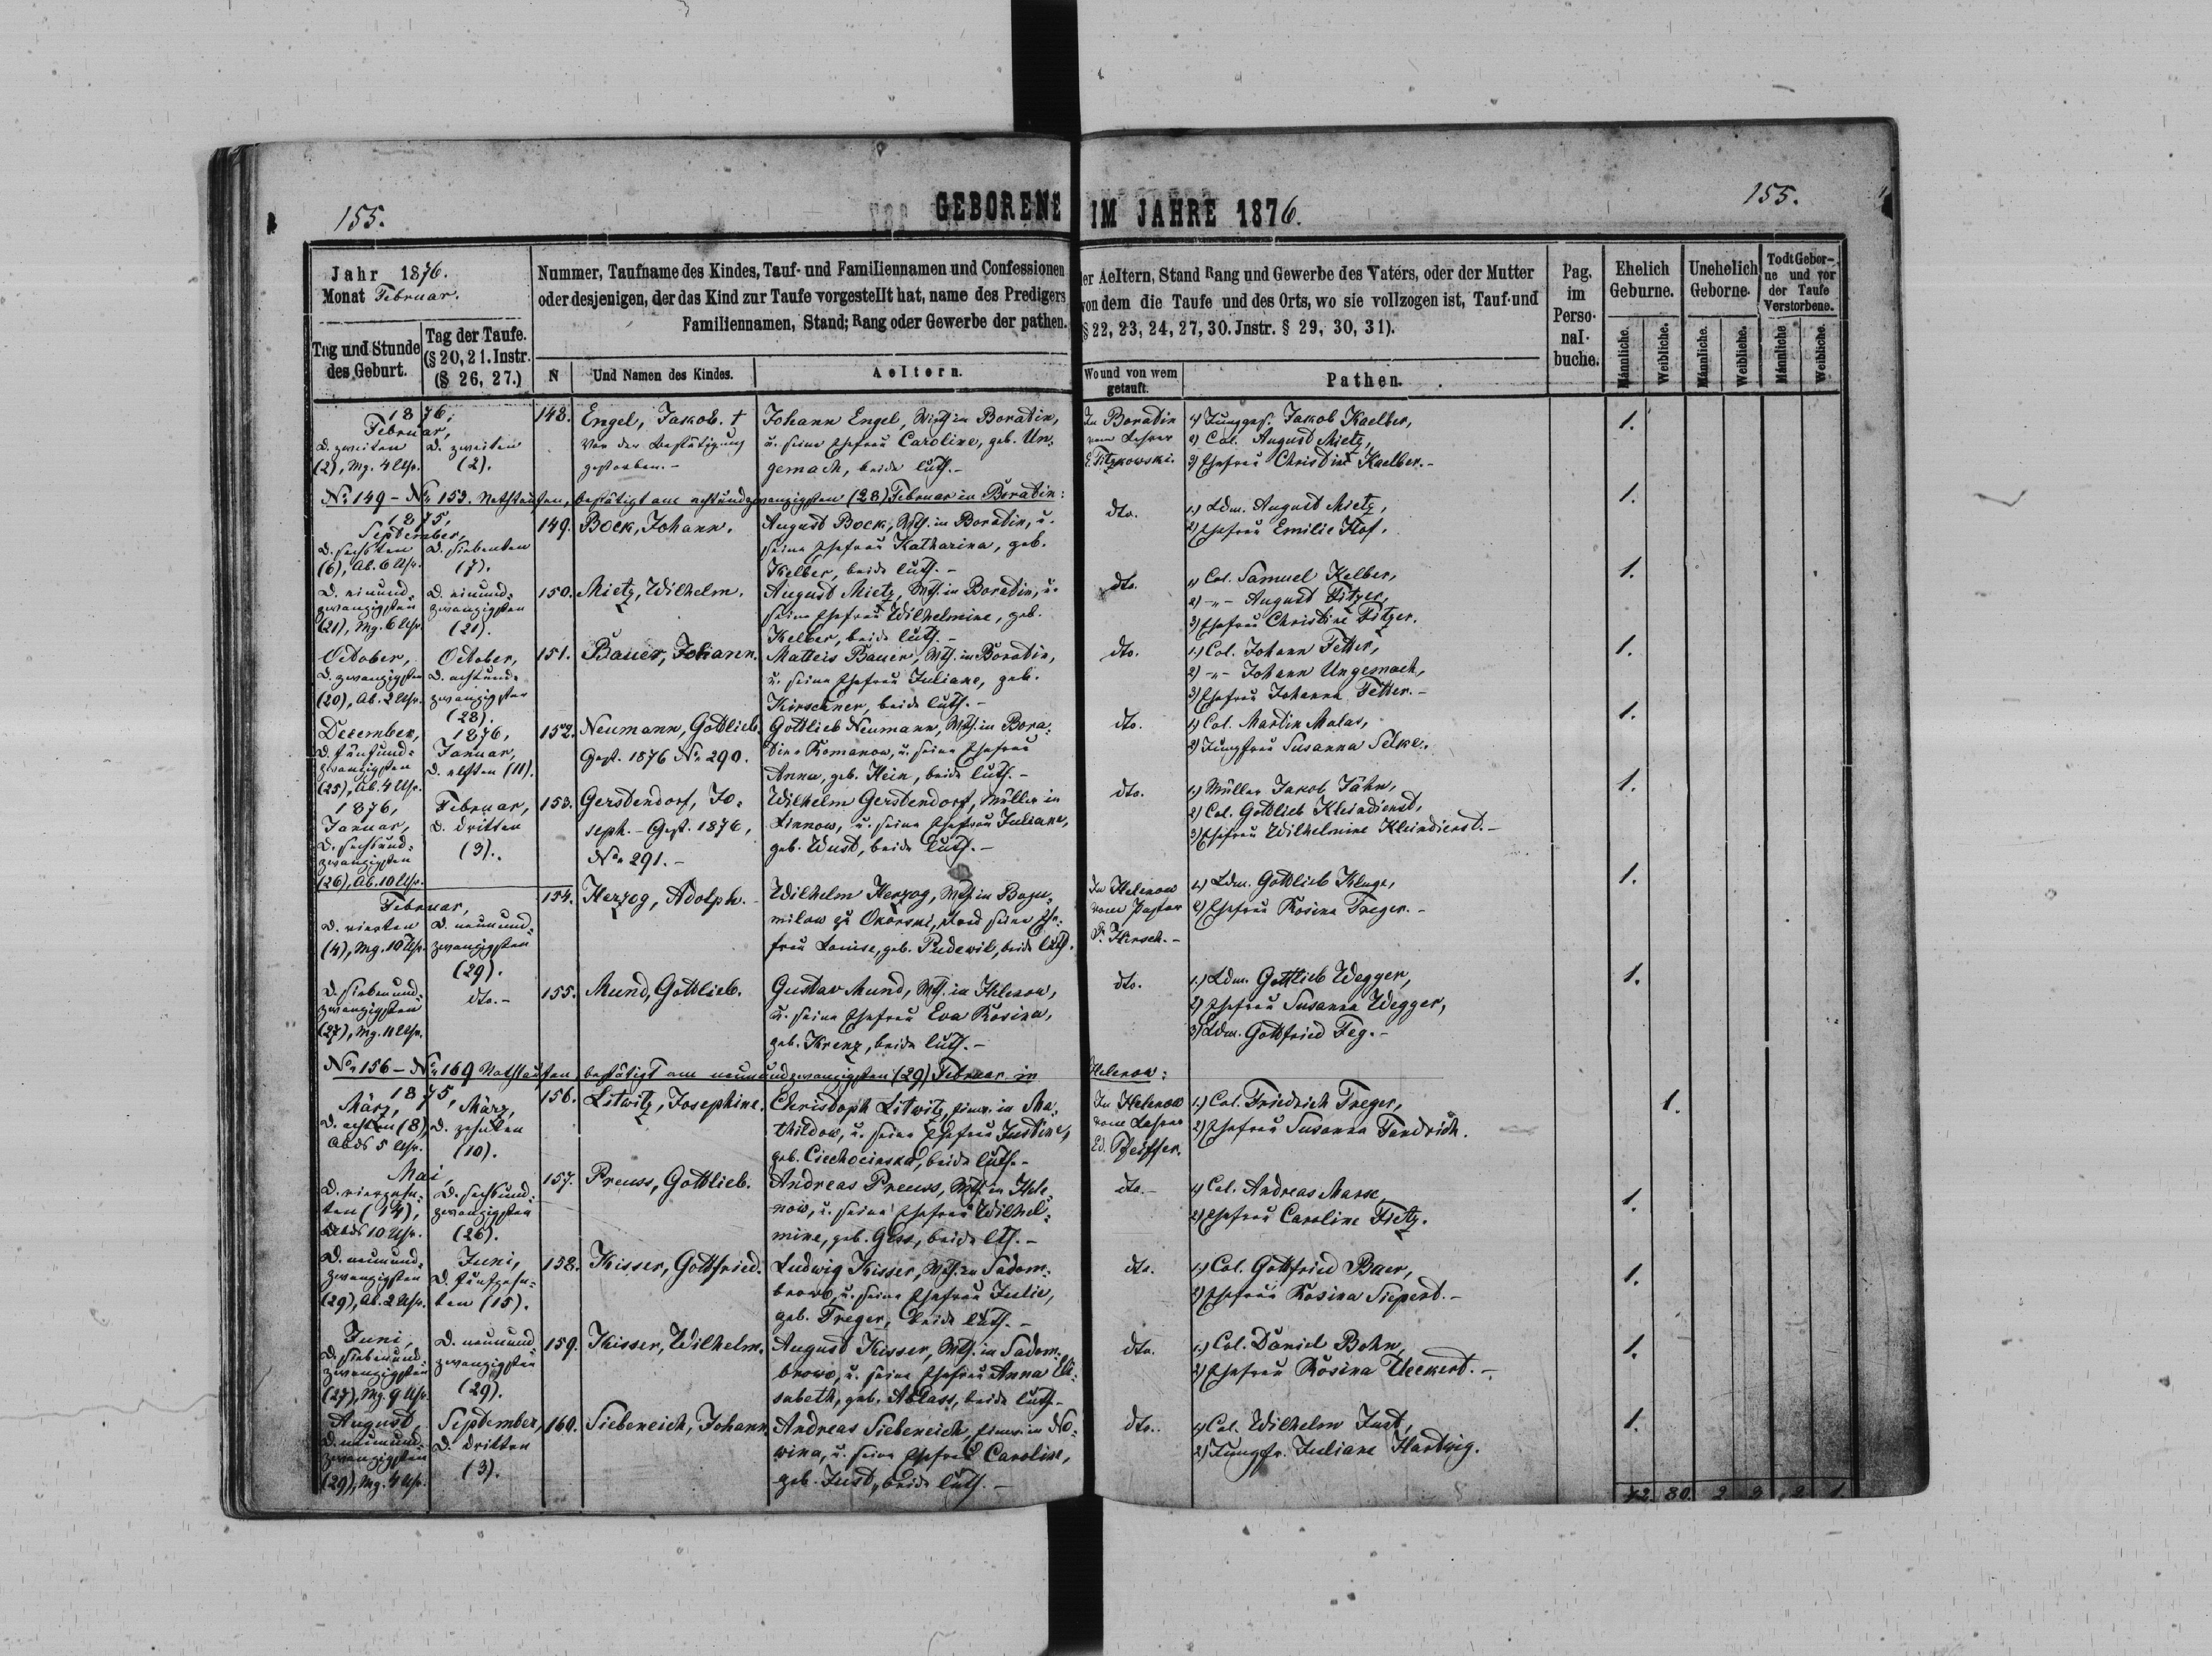 155.
GEBORENE IM JAHRE 1876.
155.
Jahr 1876.
Monat Februar.
Tag und Stunde des Geburt.
Tag der Taufe. (§ 20, 21. Instr. (§ 26, 27.)
Nummer, Taufname des Kindes, Tauf- und Familiennamen und Confessionen der Aeltern, Stand Rang und Gewerbe des Vaters, oder der Mutter
oder desjenigen, der das Kind zur Taufe vorgestellt hat, name des Predigers von dem die Taufe und des Orts, wo sie vollzogen ist, Tauf- und
Familiennamen, Stand; Rang oder Gewerbe der pathen. § 22, 23, 24, 27, 30. Jnstr. § 29, 30, 31).
N
Und Namen des Kindes.
Aeltern.
Wo und von wem getauft.
Pathen.
Pag. im Perso- nal- buche.
Ehelich Geburne.
Unehelich Geborne.
Todt Gebor- ne und vor der Taufe Verstorbene.
Männliche. Weibliche. Männliche. Weibliche. Männliche Weibliche.
1876,
Februar,
D. zweiten
(2), Mg. 4 Uhr.
D. zweiten
(2).
148.
Engel, Jakob. †
Vor der Bestätigung
gestorben.-
Johann Engel, Wth in Boratin,
u. seine Ehefrau Caroline, geb. Un-
gemach, beide luth.-
In Boratin
vom Lehrer
1) Junggs. Jakob Kaelber,
2) Col. August Mietz,
3) Ehefrau Christine Kaelber.-
1.
No 149 - No 153. Nothtaufen, bestätigt am achtundzwanzigsten (28) Februar in Boratin:
1875,
September,
D. sechsten
(6), Ab. 6 Uhr.
D. siebenten
(7).
149.
Bock, Johann.
August Bock, Wth. in Boratin, u.
seine Ehefrau Katharina, geb.
Kelber, beide luth.-
dto.
1.) Ldm. August Mietz,
2) Ehefrau Emilie Hof.
1.
D. einund-
zwanzigsten
(21), Mg. 6 Uhr.
D. einund-
zwanzigsten
(21).
150.
Mietz, Wilhelm.
August Mietz, Wth. in Boratin, u.
seine Ehefrau Wilhelmine, geb.
Kelber, beide luth.-
dto.
1) Col. Samuel Kelber,
2) -"- August Fitzer,
3) Ehefrau Christine Fitzer.
1.
October,
D. zwanzigsten
(20), Ab. 2 Uhr.
October,
D. achtund-
zwanzigsten
(28).
151.
Bauer, Johann.
Matteis Bauer, Wth. in Boratin,
u. seine Ehefrau Juliane, geb.
Kirschner, beide luth.-
dto.
1.) Col. Johann Fetter,
2) -"- Johann Ungemach,
3) Ehefrau Johanna Fetter.-
1.
December,
D. fünfund-
zwanzigsten
(25), Ab. 4 Uhr.
1876,
Januar,
D. elften (11).
152.
Neumann, Gottlieb.
Gest. 1876 No 290.
Gottlieb Neumann, Wth. in Bora-
tine Romanow, u. seine Ehefrau
Anna, geb. Hein, beide luth.-
dto.
1) Col. Martin Malas,
2) Jungfrau Susanna Selke.
1.
1876,
Januar,
D. sechsund-
zwanzigsten
(26), Ab. 10 Uhr.
Februar,
D. dritten
(3).
153.
Gerstendorf, Jo-
seph.- Gest. 1876,
No 291.-
Wilhelm Gerstendorf, Müller in
Linnow, u. seine Ehefrau Juliane,
geb. Wust, beide luth.-
dto.
1.) Müller Jakob Jähn,
2) Col. Gottlieb Kleindienst,
3) Ehefrau Wilhelmine Kleindienst.-
1.
Februar,
D. vierten
(4), Mg. 10 Uhr.
D. neunund-
zwanzigsten
(29).
154.
Herzog, Adolph.
Wilhelm Herzog, Wth. in Bogu-
milow zu Okorski, und seine Ehe-
frau Louise, geb. Pudewil, beide luth.
In Helenow
vom Pastor
Hirsch.-
1.) Ldm. Gottlieb Kluge,
2) Ehefrau Rosina Treger.-
1.
D. siebenund-
zwanzigsten
(27), Mg. 11 Uhr.
dto.-
155.
Mund, Gottlieb.
Gustav Mund, Wth. in Helenow,
u. seine Ehefrau Eva Rosina,
geb. Krenz, beide luth.-
dto.
1.) Ldm. Gottlieb Wegger,
2) Ehefrau Susanna Wegger,
3) Ldm. Gottfried Feg.-
1.
No 156 - No 169 Nothtaufen, bestätigt am neunundzwanzigsten (29) Februar in Helenow:
1875,
März,
D. achten (8),
Abds 5 Uhr.
März,
D. zehnten
(10).
156.
Litwitz, Josephine.
Christoph Litwitz, Einw. in Ma-
thildow, u. seine Ehefrau Justine,
geb. Ciechocinska, beide luth.-
In Helenow
vom Lehrer
Ed. Pfeiffer.
1.) Col. Friedrich Treger,
2) Ehefrau Susanna Fandrich.
1.
Mai,
D. vierzehn-
ten (14),
Abds 10 Uhr.
D. sechsund-
zwanzigsten
(26).
157.
Preuss, Gottlieb.
Andreas Preuss, Wth. in Hele-
now, u. seine Ehefrau Wilhel-
mine, geb. Gess, beide lth.-
dto.-
1) Col. Andreas Masse,
2) Ehefrau Caroline Fietz.
1.
D. neunund-
zwanzigsten
(29), Ab. 2 Uhr.
Juni,
D. fünfzehn-
ten (15).
158.
Kisser, Gottfried.
Ludwig Kisser, Wth. in Sadom-
browo, u. seine Ehefrau Julie,
geb. Treger, beide luth.-
dto.
1.) Col. Gottfried Baer,
2) Ehefrau Rosina Siepert.-
1.
Juni,
D. siebenund-
zwanzigsten
(27), Mg. 9 Uhr.
D. neunund-
zwanzigsten
(29).
159.
Kisser, Wilhelm.
August Kisser, Wth. in Sadom-
browo, u. seine Ehefrau Anna Eli-
sabeth, geb. Ablass, beide luth.-
dto.
1.) Col. Daniel Bohn,
2) Ehefrau Rosina Ueckert.-
1.
August,
D. neunund-
zwanzigsten
(29), Mg. 4 Uhr.
September,
D. dritten
(3).
160.
Siebeneich, Johann.
Andreas Siebeneich, Einw. in No-
wina, u. seine Ehefrau Caroline,
geb. Just, beide luth.-
dto.
1) Col. Wilhelm Just,
2) Jungfr. Juliane Hartwig.
1.
80. 2 2 1.